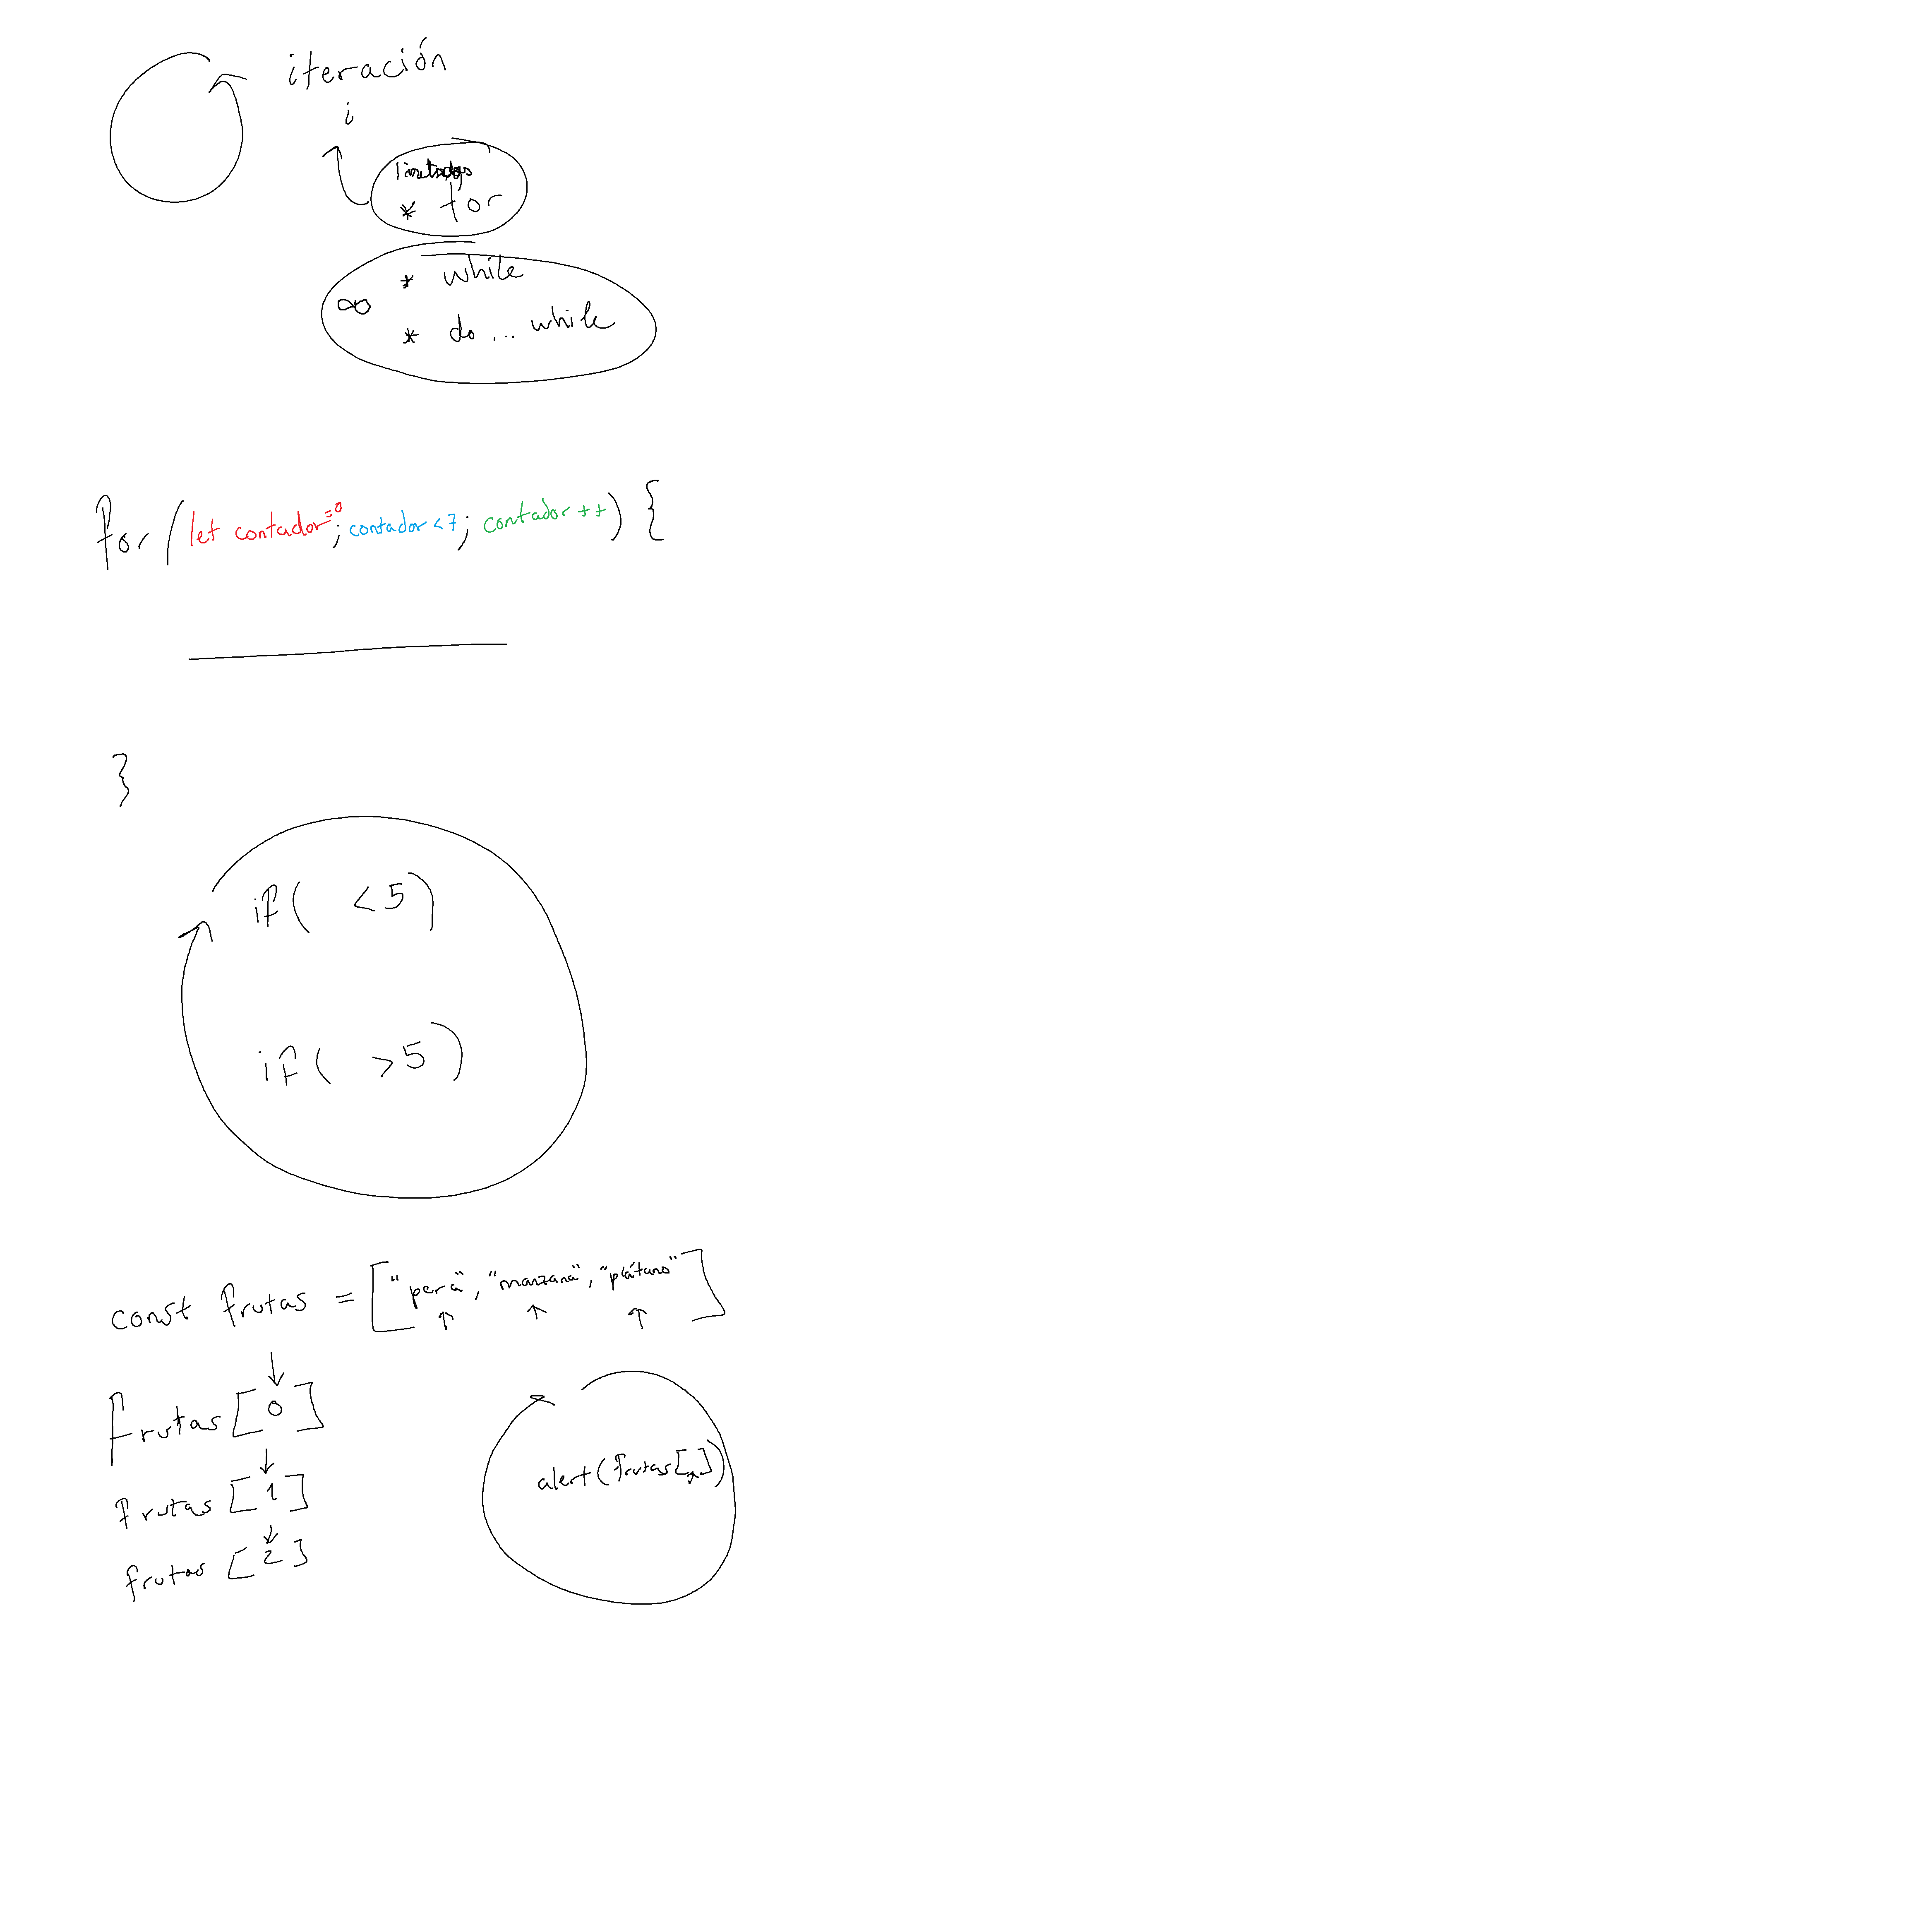 iteración
i
limitados
* for
∞ * while
* do ... while
for (let contador=0; contador<7; contador++) {
}
if( <5)
if( >5)
const frutas = ["pera", "manzana", "plátano"]
frutas [0]
frutas [1]
frutas [2]
alert(frutas[ ])